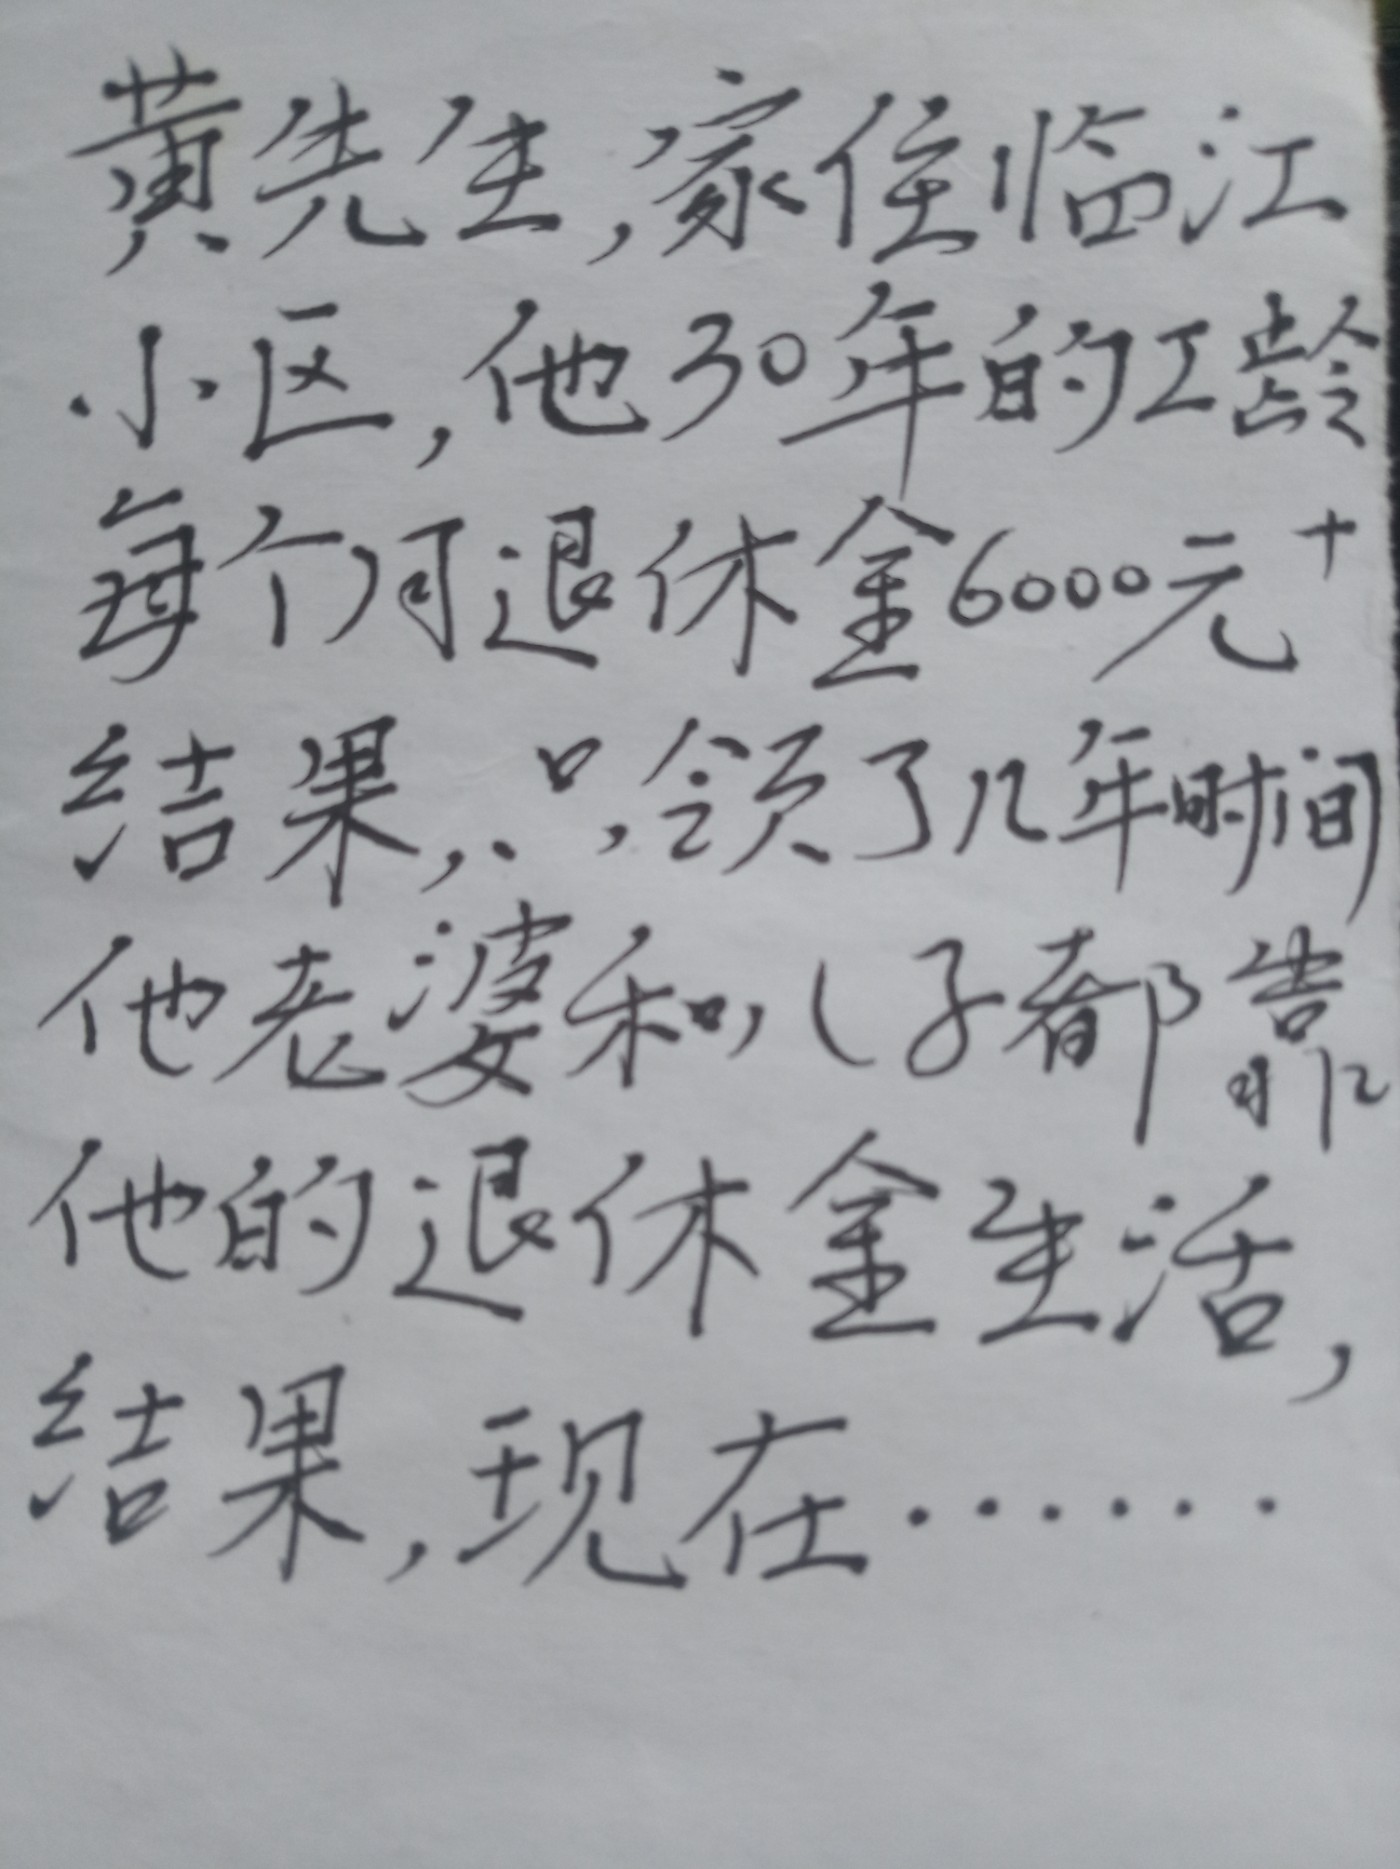 黄先生,家住临江
小区,他30年的工龄
每个月退休金6000元+
结果,只领了几年时间
他老婆和儿子都靠
他的退休金生活,
结果,现在······